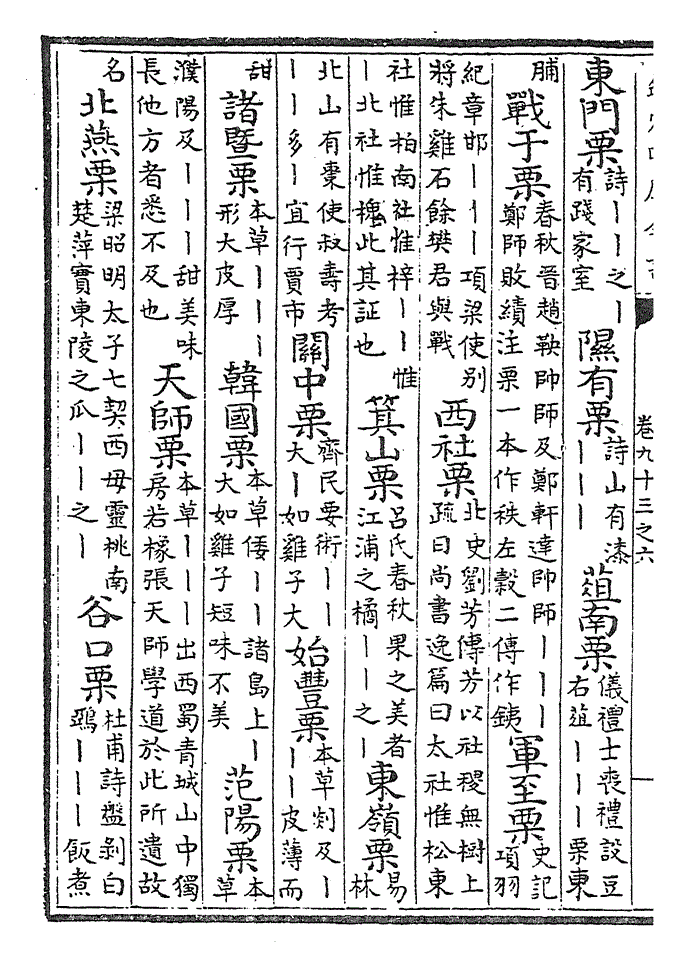 卷九十三之六
東門栗詩｜｜之｜有踐家室隰有栗詩山有漆｜｜｜菹南栗儀禮士喪禮設豆右菹｜｜｜栗東
脯戰于栗春秋晉趙鞅帥師及鄭軒達帥師｜｜｜鄭師敗績注栗一本作秩左穀二傳作鐵軍至栗史記項羽
紀章邯｜｜｜項梁使別將朱雞石餘樊君與戰西社栗北史劉芳傳芳以社稷無樹上疏曰尚書逸篇曰太社惟松東
社惟柏南社惟梓｜｜惟｜北社惟槐此其証也箕山栗呂氏春秋果之美者江浦之橘｜｜之｜東嶺栗易林
北山有棗使叔壽考｜｜多｜宜行賈市關中栗齊民要術｜｜大｜如雞子大始豐栗本草剡及｜｜｜皮薄而
甜諸暨栗本草｜｜｜形大皮厚韓國栗本草倭｜｜諸島上｜大如雞子短味不美范陽栗本草
濮陽及｜｜｜甜美味長他方者悉不及也天師栗本草｜｜｜出西蜀青城山中獨房若橡張天師學道於此所遺故
名北燕栗梁昭明太子七契西母靈桃南楚萍實東陵之瓜｜｜之｜谷口栗杜甫詩盤剝白鴉｜｜｜飯煮